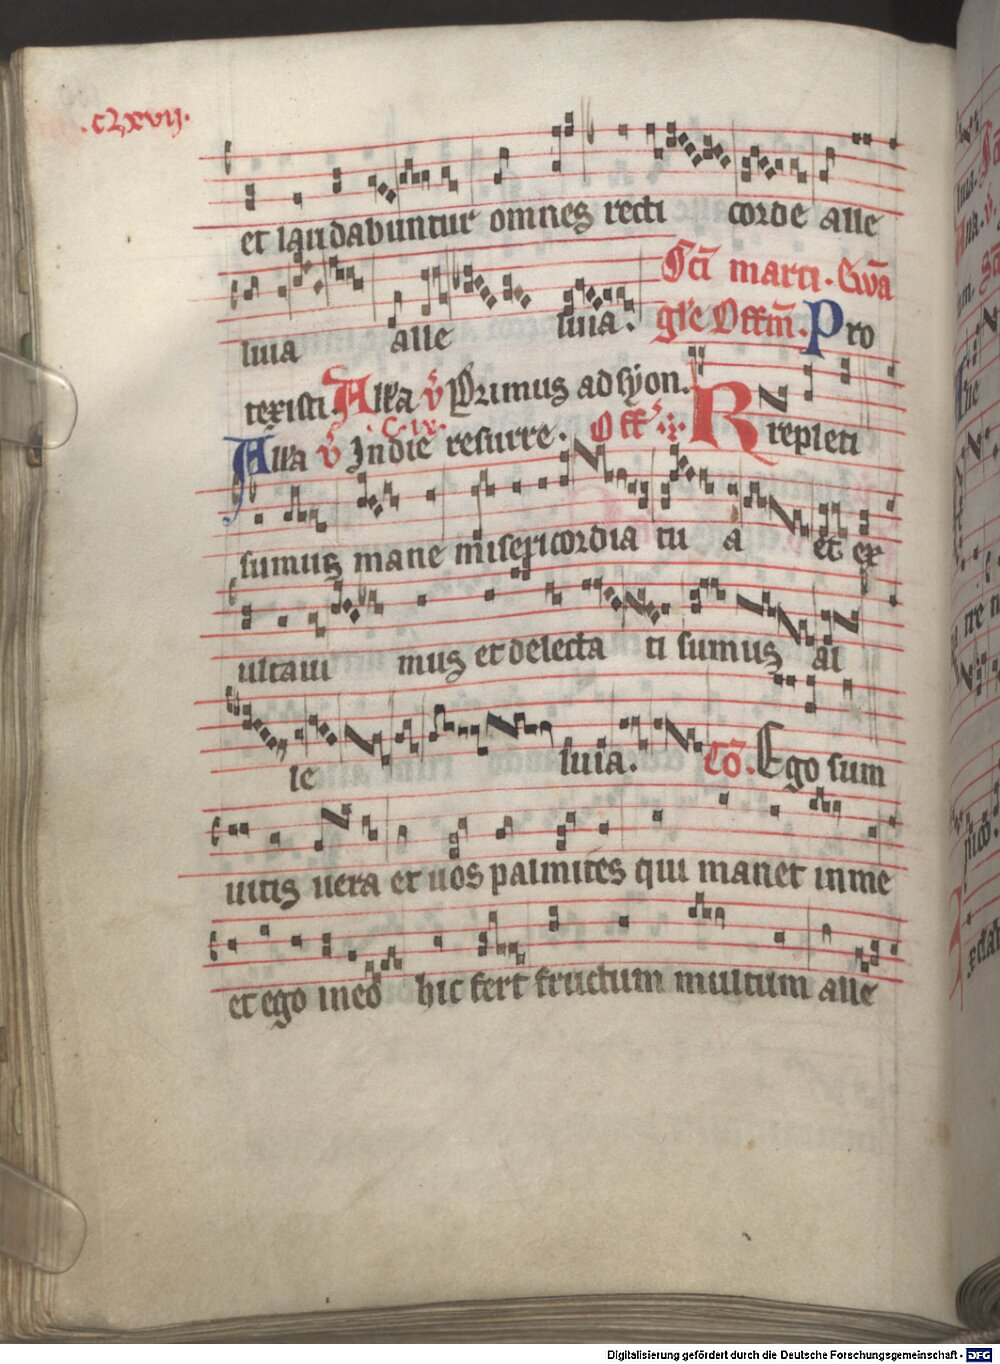 .clxvij.
et laudabuntur omnes recti corde alle
luia alle luia. Sci marci. Ewā
gľe Offm̄. Pro
texisti. Alľa v̄ Primus ad syon.
.c.ix.
Alľa v̄ In die resurre. Off. Repleti
sumus mane misericordia tu a et ex
ultaui mus et delecta ti sumus al
le luia. Cō. Ego sum
uitis uera et uos palmites qui manet in me
et ego in eo hic fert fructum multum alle
Digitalisierung gefördert durch die Deutsche Forschungsgemeinschaft - DFG